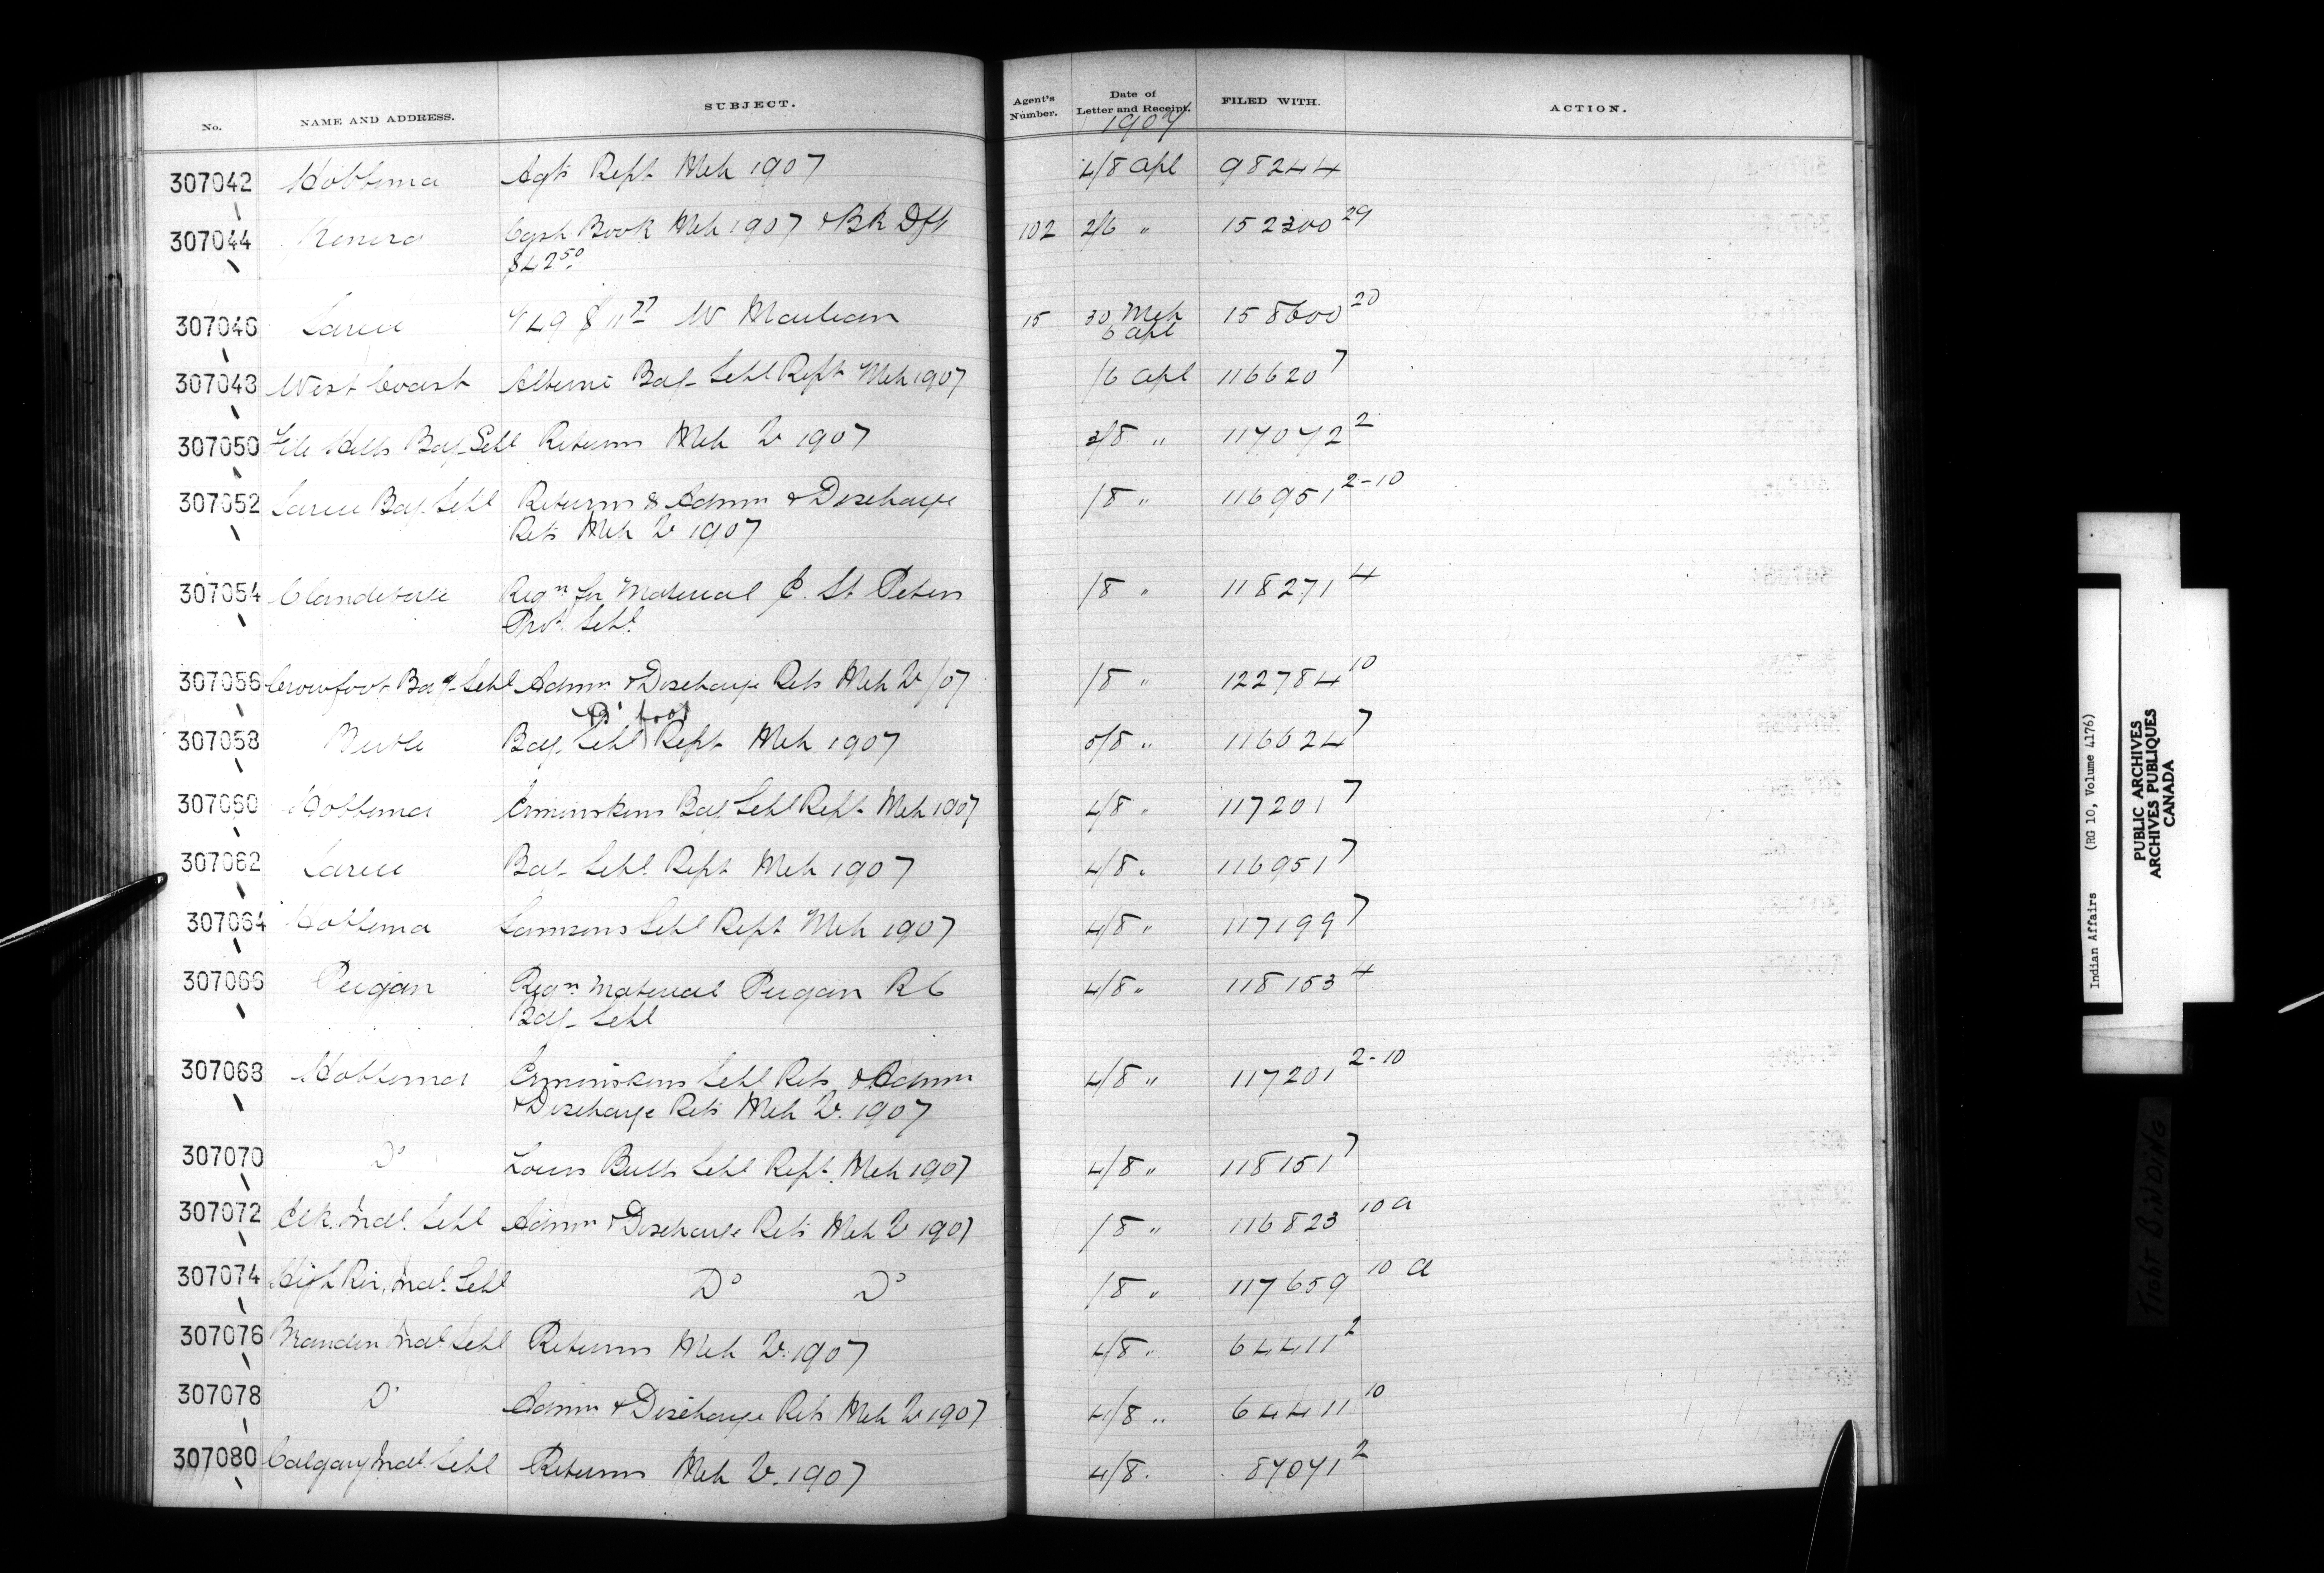 No. NAME AND ADDRESS. SUBJECT. Agent's Number. Date of Letter and Receipt. FILED WITH. ACTION.
1907
307042 Hobbema Agts Rept Mch 1907 4/8 Apl 98244
307044 Kenora Cash Book Mch 1907 & Bk Dft 102 2/6 " 152300 29
$42 50
307046 Sarcee 449 $11 77 W 15 30 Mch 158600 20
6 Apl
307048 West Coast Alberni Bdg Schl Rept Mch 1907 /6 Apl 116620 7
307050 File Hills Bdg Schl Returns Mch Qr 1907 3/8 " 117072 2
307052 Sarcee Bdg. Schl Returns & Admn & Discharge /8 " 116951 2-10
Rets Mch Qr 1907
307054 Clandeboye Reqn for Material St Peters /8 " 118271 4
Prot. Schl.
307056 Crowfoot Bdg. Schl Admn & Discharge Rets Mch Qr /07 /8 " 122784 10
foot
307058 Bdg. Schl Rept Mch 1907 5/8 " 116624 7
307060 Hobbema Ermineskins Bdg Schl Rept Mch 1907 4/8 " 117201 7
307062 Sarcee Bdg. Schl. Rept Mch 1907 4/8 " 116951 7
307064 Hobbema Samsons Schl Rept Mch 1907 4/8 " 117199 7
307066 Peigan Reqn Material Peigan RC 4/8 " 118153 4
Bdg. Schl
307068 Hobbema Ermineskins Schl Rets & Admn 4/8 " 117201 2-10
& Discharge Rets Mch Qr. 1907
307070 Do Louis Bulls Schl Rept. Mch 1907 4/8 " 118151 7
307072 Elk. Indl. Schl Admn & Discharge Rets Mch Qr 1907 /8 " 116823 10a
307074 High Riv. Indl. Schl Do Do /8 " 117659 10 a
307076 Brandon Indl. Schl Returns Mch Qr. 1907 4/8 " 64411 2
307078 Do Admn & Discharge Rets Mch Qr 1907 4/8 " 64411 10
307080 Calgary Indl. Schl Returns Mch Qr. 1907 4/8 . 87071 2
Indian Affairs (RG 10, Volume 4176)
PUBLIC ARCHIVES
ARCHIVES PUBLIQUES
CANADA
TIGHT BINDING